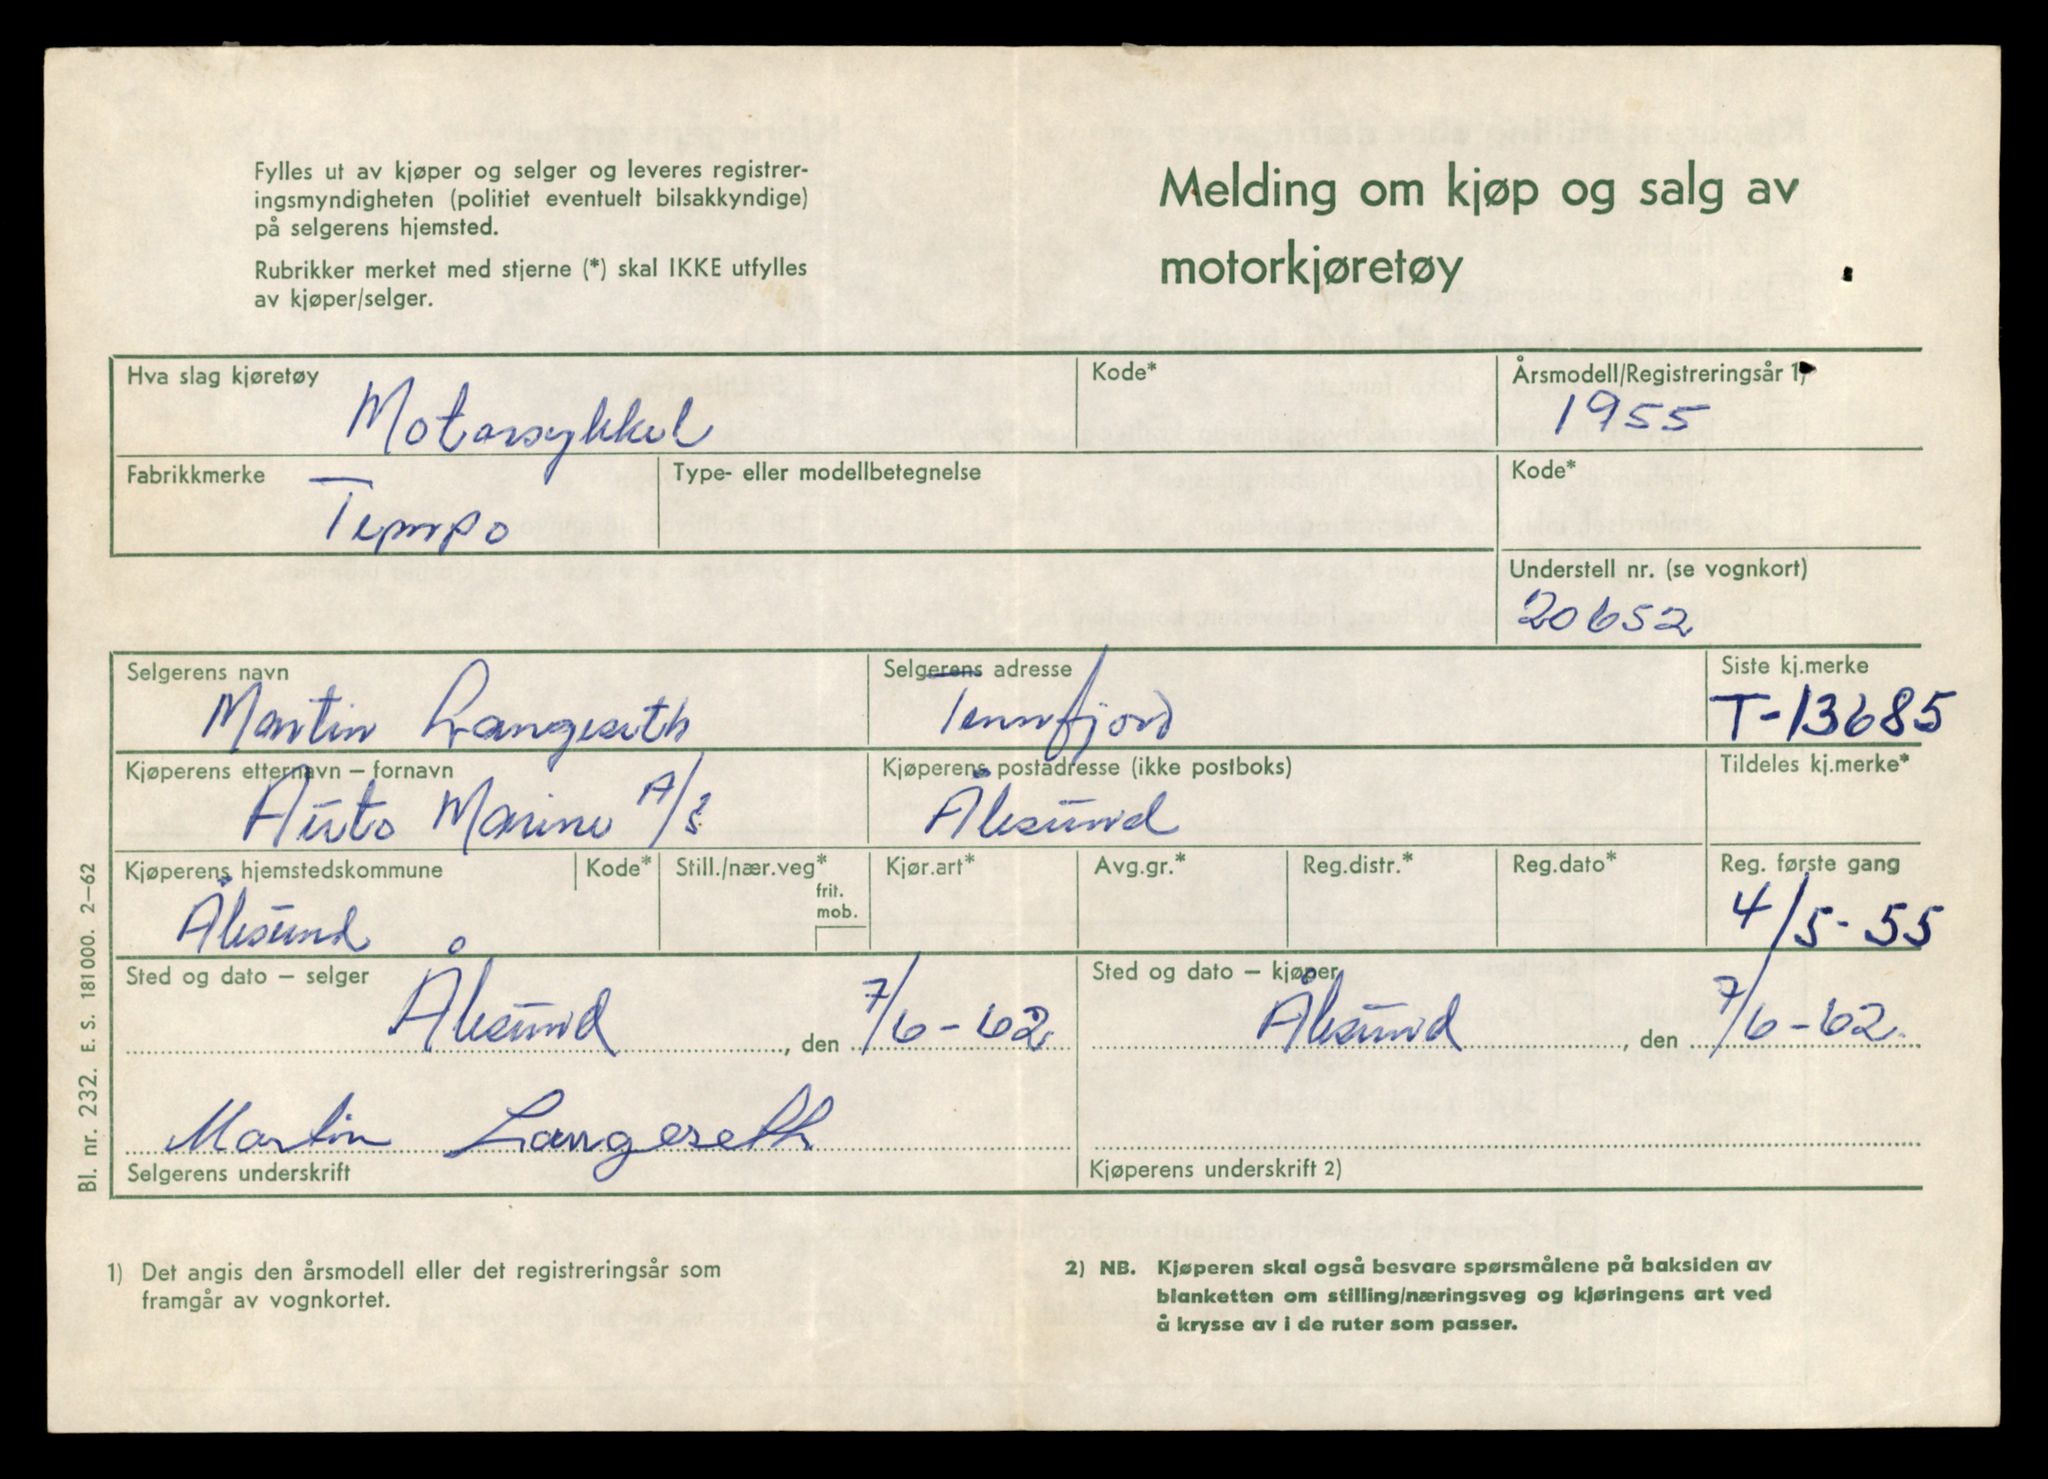 Fylles ut av kjøper og selger og leveres registrer-
ingsmyndigheten (politiet eventuelt bilsakkyndige)
på selgerens hjemsted.
Rubrikker merket med stjerne (*) skal IKKE utfylles
av kjøper/selger.
Melding om kjøp og salg av
motorkjøretøy
Hva slag kjøretøy
Motorsykkel
Kode*
Årsmodell/Registreringsår 1)
1955
Fabrikkmerke
Tempo
Type- eller modellbetegnelse
Kode*
Understell nr. (se vognkort)
20652
Selgerens navn
Martin Langeseth
Selgerens adresse
Tennfjord
Siste kj.merke
T-13685
Kjøperens etternavn – fornavn
Auto Marine A/S
Kjøperens postadresse (ikke postboks)
Ålesund
Tildeles kj.merke*
Kjøperens hjemstedskommune
Ålesund
Kode*
Still./nær.veg*
frit.
mob.
Kjør.art*
Avg.gr.*
Reg.distr.*
Reg.dato*
Reg. første gang
4/5-55
Sted og dato – selger
Ålesund, den 7/6-62
Sted og dato – kjøper
Ålesund, den 7/6-62.
Martin Langeseth
Selgerens underskrift
Kjøperens underskrift 2)
Bl. nr. 232. E. S. 181000. 2–62
1) Det angis den årsmodell eller det registreringsår som
framgår av vognkortet.
2) NB. Kjøperen skal også besvare spørsmålene på baksiden av
blanketten om stilling/næringsveg og kjøringens art ved
å krysse av i de ruter som passer.